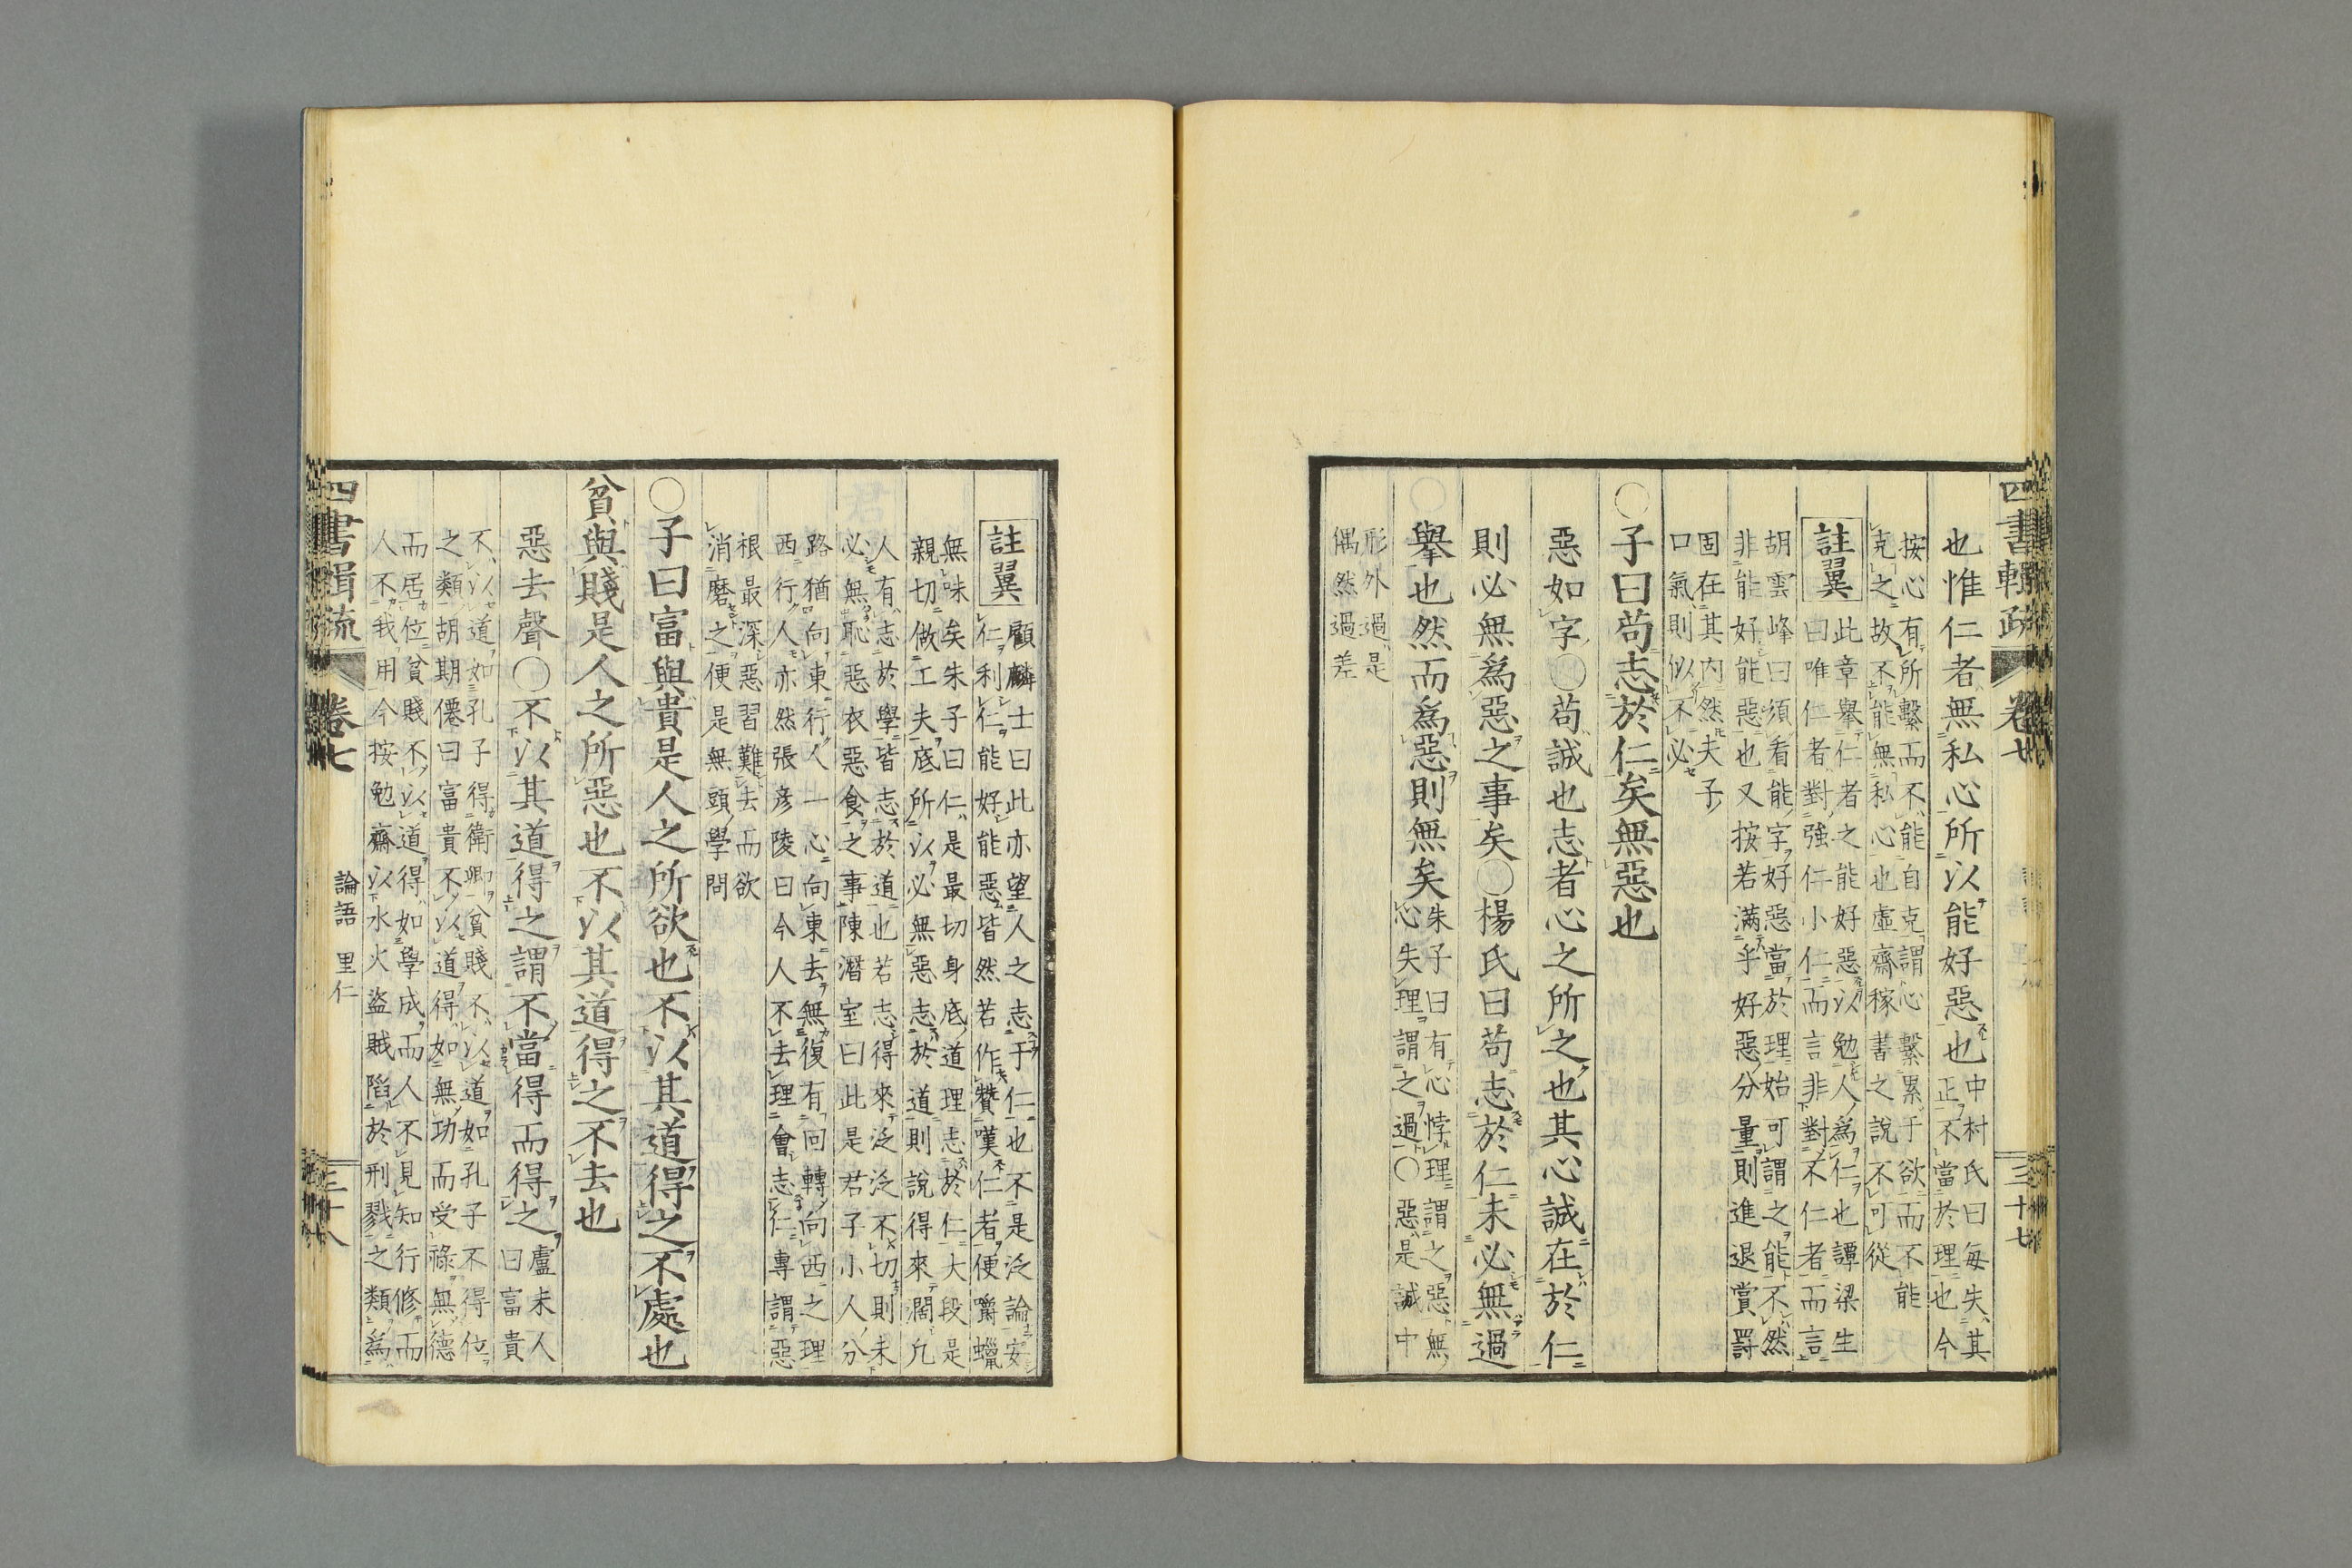 四書輯疏 卷七 三十七
也惟仁者無私心所以能好惡也中村氏曰毎失其
正不當於理也今
按心有所繫而不能自克謂心繫累于欲而不能
克之故不能無私心也虚齋稼書之說不可從
註翼
此章舉仁者之能好惡以勉人為仁也譚梁生
曰唯仁者對強仁小仁而言非對不仁者而言
胡雲峰曰須看能字好惡當於理始可謂之能不然
非能好能惡也又按若滿乎好惡分量則進退賞罸
固在其内然夫子
口氣則似不必
○子曰苟志於仁矣無惡也
惡如字○苟誠也志者心之所之也其心誠在於仁
則必無為惡之事矣○楊氏曰苟志於仁未必無過
舉也然而為惡則無矣朱子曰有心悖理謂之惡無
心失理謂之過○惡是誠中
形外過是
偶然過差
註翼
顧麟士曰此亦望人之志于仁也不是泛論安
仁利仁能好能惡皆然若作贊嘆仁者便嚼蠟
無味矣朱子曰仁是最切身底道理志於仁大段是
親切做工夫底所以必無惡志於道則說得來濶凢
人有志於學皆志於道也若志得來泛泛不切則未
必無恥惡衣惡食之事陳潛室曰此是君子小人分
路猶向東行人一心向東去無復有回轉向西之理
西行人亦然張彦陵曰今人不去理會志仁專謂惡
根最深惡習難去而欲
消磨之便是無頭學問
○子曰富與貴是人之所欲也不以其道得之不處也
貧與賤是人之所惡也不以其道得之不去也
惡去聲○不以其道得之謂不當得而得之盧未人
曰富貴
不以道如孔子得衛卿貧賤不以道如孔子不得位
之類胡期僊曰富貴不以道得如無功而受祿無德
而居位貧賤不以道得如學成而人不見知行修而
人不我用今按勉齋以水火盜賊陷於刑戮之類為
四書輯疏 卷七 論語 里仁 三十八